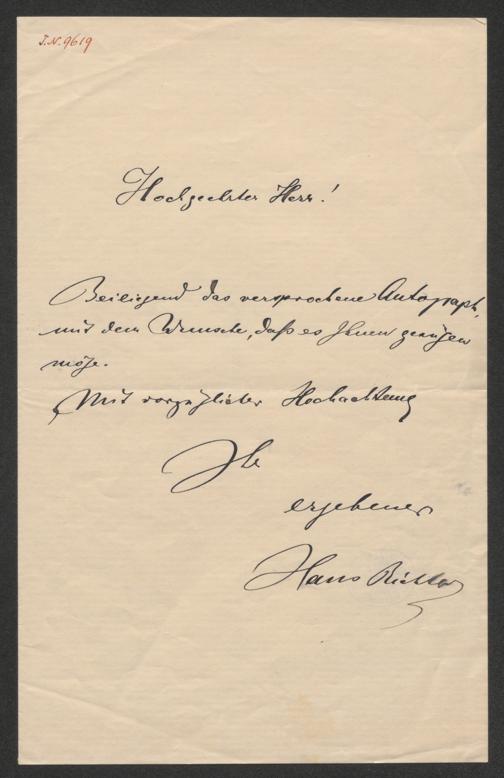 J.N. 9619
Hochgeehrter Herr!
Beiliegend das versprochene Autograph,
mit dem Wunsche, daß es Ihnen genügen
möge.
Mit vorzüglicher Hochachtung
Ihr
ergebener
Hans Richter